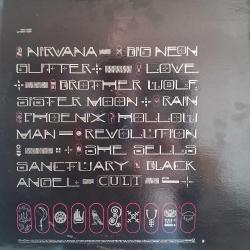 NIRVANA BIG NEON
GLITTER LOVE
BROTHER WOLF,
SISTER MOON RAIN
PHOENIX HOLLOW
MAN REVOLUTION
SHE SELLS
SANCTUARY BLACK
ANGEL CULT